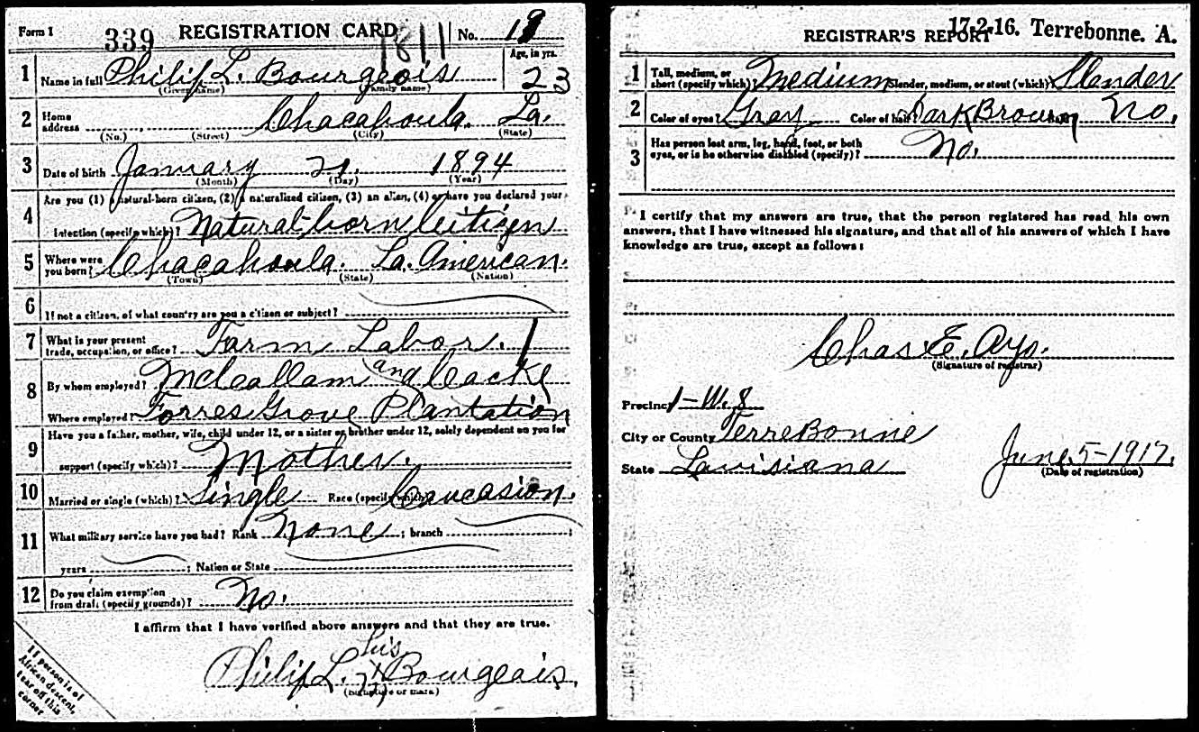 Form 1 339 REGISTRATION CARD 1811 No. 19
1 Name in full Philip L. Bourgeois Age, in yrs. 23
(Given name) (Family name)
2 Home address Chacahoula. La.
(No.) (Street) (City) (State)
3 Date of birth January 21. 1894
(Month) (Day) (Year)
4 Are you (1) a natural-born citizen, (2) a naturalized citizen, (3) an alien, (4) or have you declared your
intention (specify which)? Natural born Citizen
5 Where were you born? Chacahoula. La. American.
(Town) (State) (Nation)
6 If not a citizen, of what country are you a citizen or subject?
7 What is your present trade, occupation, or office? Farm Labor.
8 By whom employed? McCallam and Cocke
Where employed? Forres Grove Plantation
9 Have you a father, mother, wife, child under 12, or a sister or brother under 12, solely dependent on you for
support (specify which)? Mother.
10 Married or single (which)? Single Race (specify which)? Caucasion.
11 What military service have you had? Rank None ; branch ;
years ; Nation or State
12 Do you claim exemption from draft (specify grounds)? No.
I affirm that I have verified above answers and that they are true.
his
Philip L. X Bourgeois.
(Signature or mark)
If person is of
African descent,
tear off this
corner
17-2-16. Terrebonne. A.
REGISTRAR'S REPORT
1 Tall, medium, or short (specify which)? Medium Slender, medium, or stout (which)? Slender
2 Color of eyes? Gray Color of hair? Dark Brown No.
3 Has person lost arm, leg, hand, foot, or both
eyes, or is he otherwise disabled (specify)? No.
I certify that my answers are true, that the person registered has read his own
answers, that I have witnessed his signature, and that all of his answers of which I have
knowledge are true, except as follows:
Chas E. Ayo.
(Signature of registrar)
Precinct 1-W. 8
City or County TerreBonne
State Lavisiana
June 5-1917.
(Date of registration)